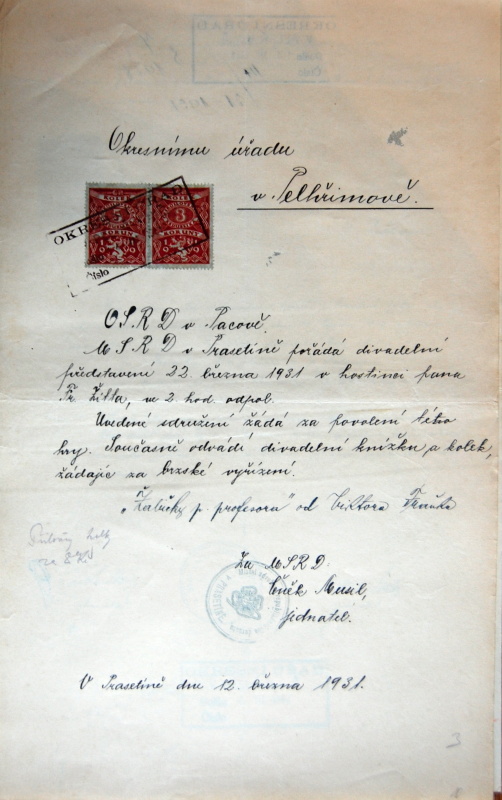 Okresnímu úřadu
v Pelhřimově.
KOLEK
5
KORUNY
KOLEK
3
KORUNY
OKRES
Číslo
OSRD v Pacově.
MSRD v Prasetíně pořádá divadelní
představení 22. března 1931 v hostinci pana
Fr. Zitta, ve 2 hod odpol.
Uvedené sdružení žádá za povolení této
hry. Současně odvádí divadelní knížku a kolek,
žádajíc za brzské vyřízení.
„Žabičky p. profesora" od Viktora
Za MSRD.
Čeněk Musil,
jednatel.
V Prasetíně dne 12. března 1931.
3